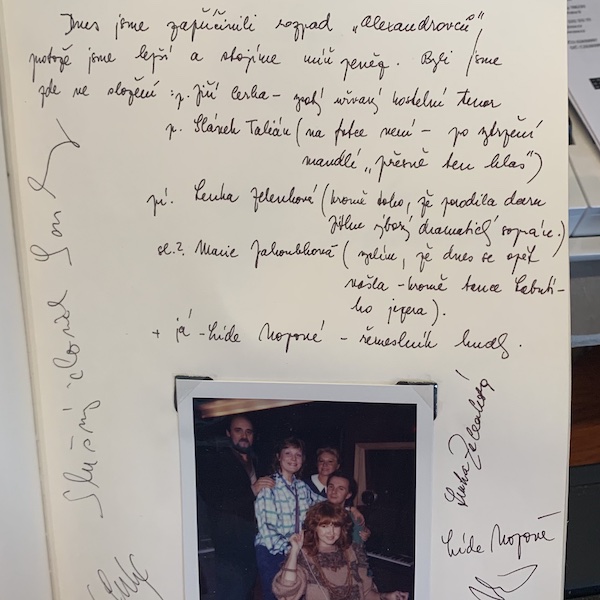 Dnes jsme zapříčinili rozpad „Alexandrovců“
protože jsme lepší a stojíme míň peněz. Byli jsme
zde ve složení: p. Jiří Cerha – zpěvný kostelní tenor
p. Slávek Talián (na fotce není – po
mandlí „přesně ten hlas“)
pí. Lenka Zelenková (kromě toho, že porodila
dramatický soprán.)
sl.? Marie Jakoubková (myslím, že dnes se opět
našla – kromě tance Labutí-
ho jezera).
+ já – Lída Nopová – řemeslník hudby.
Slušný
Lenka Zelenková
Lída Nopová